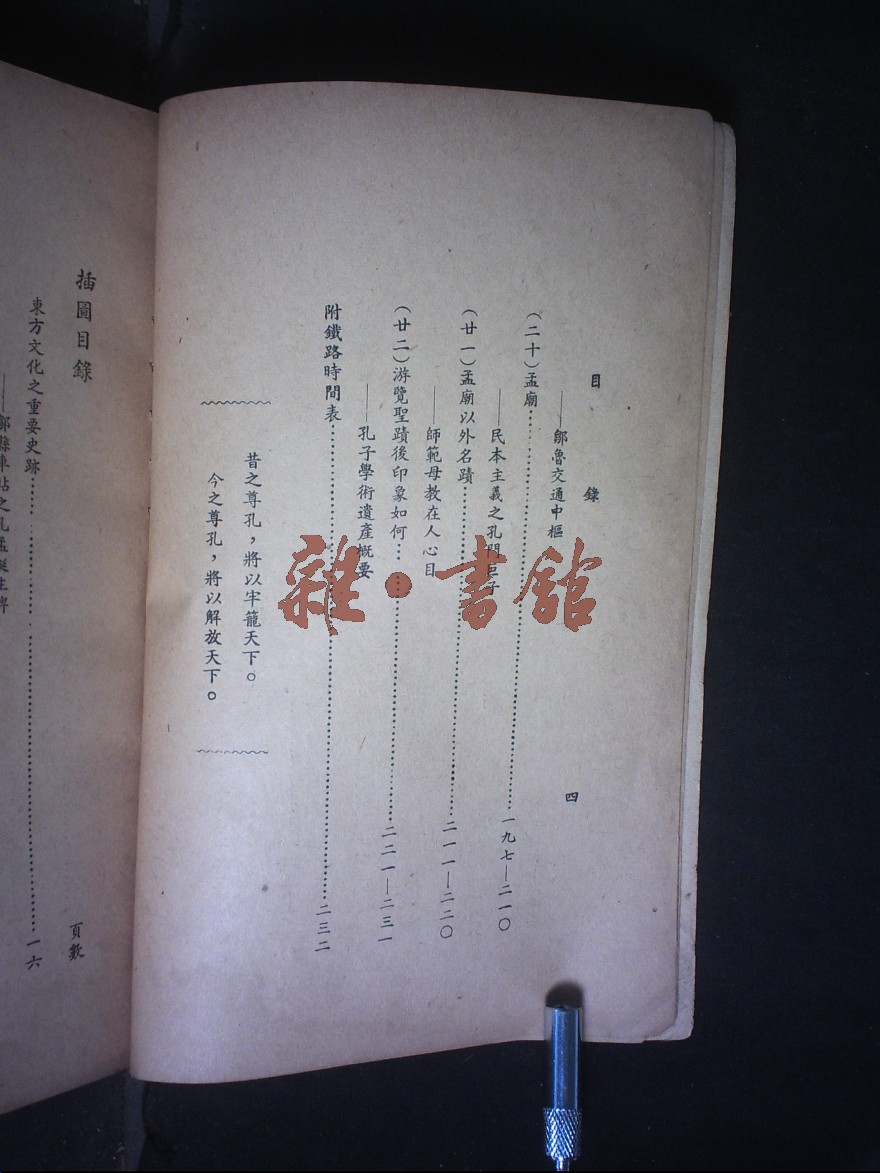 目錄
四
——鄒魯交通中樞
(二十)孟廟……一九七—二一〇
——民本主義之孔門巨子
(廿一)孟廟以外名蹟……二一一—二二〇
——師範母教在人心目
(廿二)游覽聖蹟後印象如何……二二一—二三一
——孔子學術遺產概要
附鐵路時間表……二三二
昔之尊孔，將以牢籠天下。
今之尊孔，將以解放天下。
插圖目錄
頁數
東方文化之重要史跡……一六
——鄒縣車站之孔孟誕生碑
雜·書館